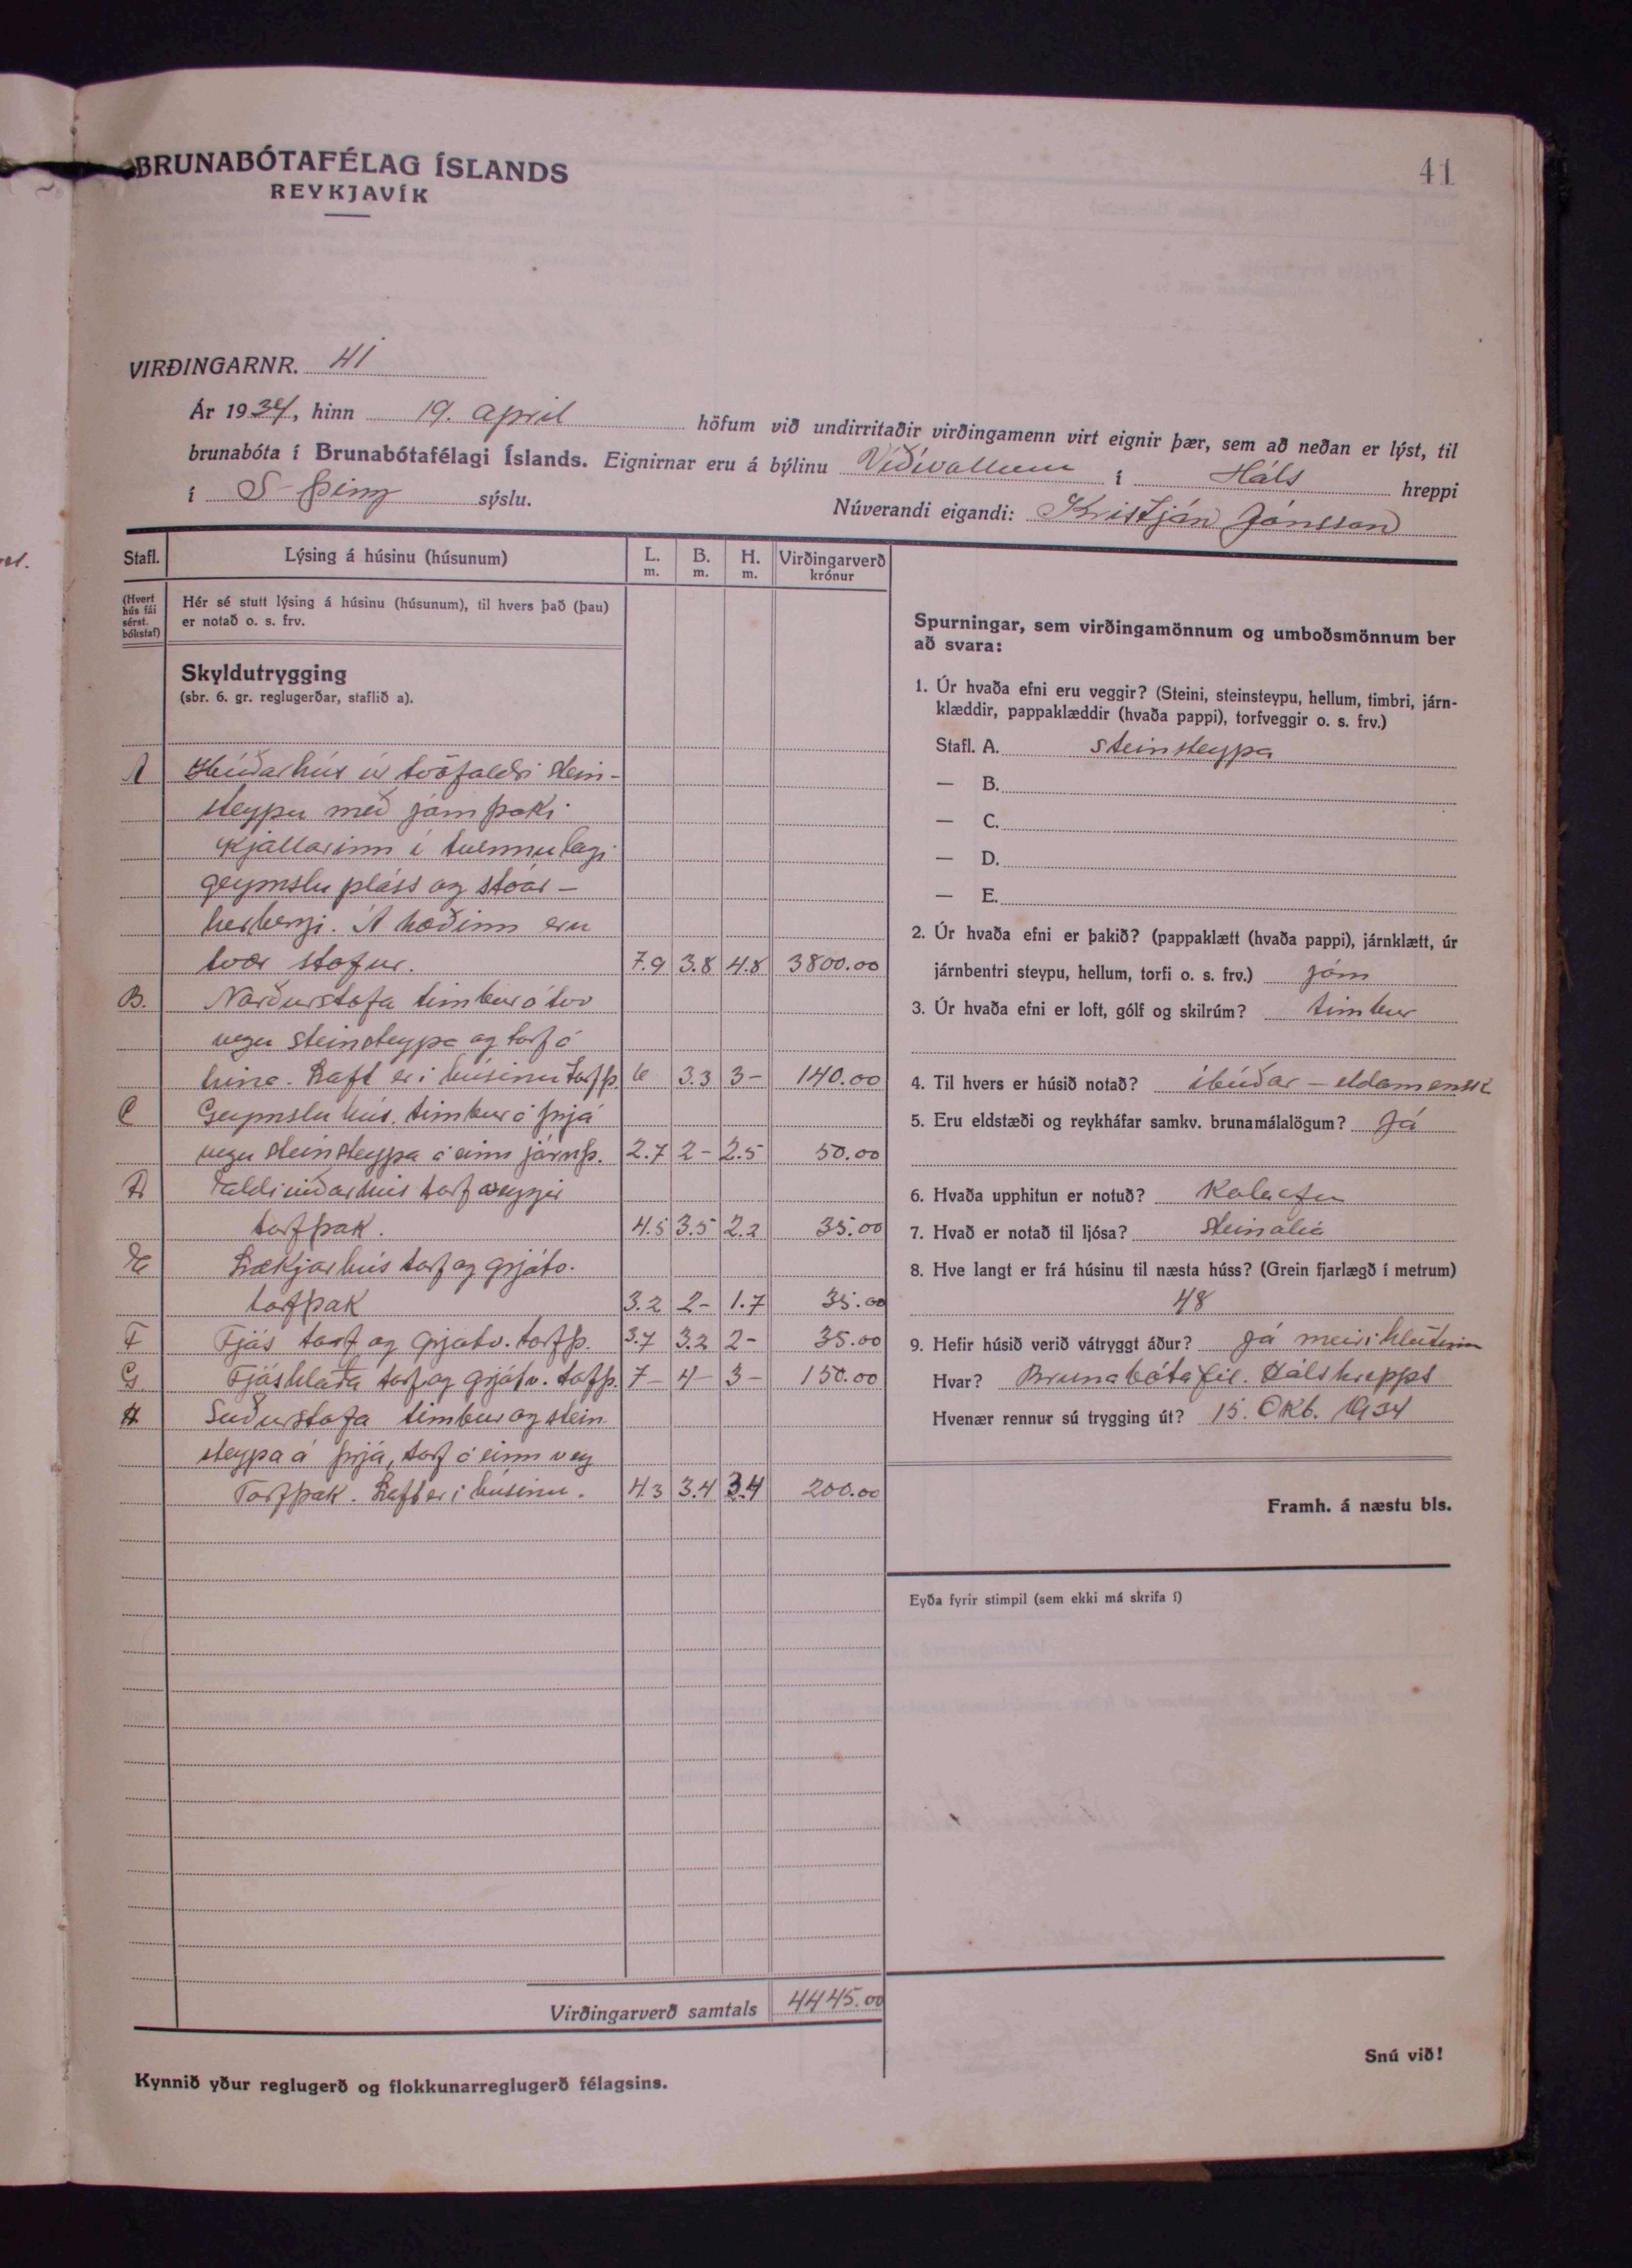 BRUNABÓTAFÉLAG ÍSLANDS
REYKJAVÍK
41
VIRÐINGARNR. 41
Ár 1934, hinn 19. april höfum við undirritaðir virðingamenn virt eignir þær, sem að neðan er lýst, til
brunabóta í Brunabótafélagi Íslands. Eignirnar eru á býlinu Víðivallum í Háls hreppi
í S-Þing sýslu. Núverandi eigandi: Kristján Jónsson
Stafl. Lýsing á húsinu (húsunum) L. m. B. m. H. m. Virðingarverð krónur
(Hvert hús fái sérst. bókstaf)
Hér sé stutt lýsing á húsinu (húsunum), til hvers það (þau)
er notað o. s. frv.
Skyldutrygging
(sbr. 6. gr. reglugerðar, staflið a).
A Íbúðarhús úr tvöfaldri stein-
steypu með járnþaki
Kjallarinn í tvennu lagi
geymslu pláss og stóar-
herbergi. Á hæðinn eru
tvær stofur. 7.9 3.8 4.8 3800.00
B. Norðurstofa timbur á tvo
vegu steinsteypa og torf á
hina. Laft er í húsinu torfþ. 6 3.3 3- 140.00
C Geymslu hús. timbur á þrjá
vegu steinsteypa á einn járnþ. 2.7 2- 2.5 50.00
D torfveggir
torfþak. 4.5 3.5 2.2 35.00
E Lækjarhús torf og grjátv.
torfþak 3.2 2- 1.7 35.00
F Fjós torf og grjatv. torfþ. 3.7 3.2 2- 35.00
G Fjóshlaða torf og grjátv. tofþ. 7- 4- 3- 150.00
H Suðurstofa timbur og stein
steypa á þrjá, torf á einn veg
Torfþak. Laft er í húsinu. 4.3 3.4 3.4 200.00
Virðingarverð samtals 4445.00
Kynnið yður reglugerð og flokkunarreglugerð félagsins.
Spurningar, sem virðingamönnum og umboðsmönnum ber
að svara:
1. Úr hvaða efni eru veggir? (Steini, steinsteypu, hellum, timbri, járn-
klæddir, pappaklæddir (hvaða pappi), torfveggir o. s. frv.)
Stafl. A. steinsteypa
— B.
— C.
— D.
— E.
2. Úr hvaða efni er þakið? (pappaklætt (hvaða pappi), járnklætt, úr
járnbentri steypu, hellum, torfi o. s. frv.) járn
3. Úr hvaða efni er loft, gólf og skilrúm? timbur
4. Til hvers er húsið notað? íbúðar – eldamensk
5. Eru eldstæði og reykháfar samkv. brunamálalögum? Já
6. Hvaða upphitun er notuð? Kolaofn
7. Hvað er notað til ljósa? Steinalía
8. Hve langt er frá húsinu til næsta húss? (Grein fjarlægð í metrum)
48
9. Hefir húsið verið vátryggt áður? Já meiri hlutinn
Hvar? Brunabótafél. Hálshrepps
Hvenær rennur sú trygging út? 15. Okt. 1934
Framh. á næstu bls.
Eyða fyrir stimpil (sem ekki má skrifa í)
Snú við!